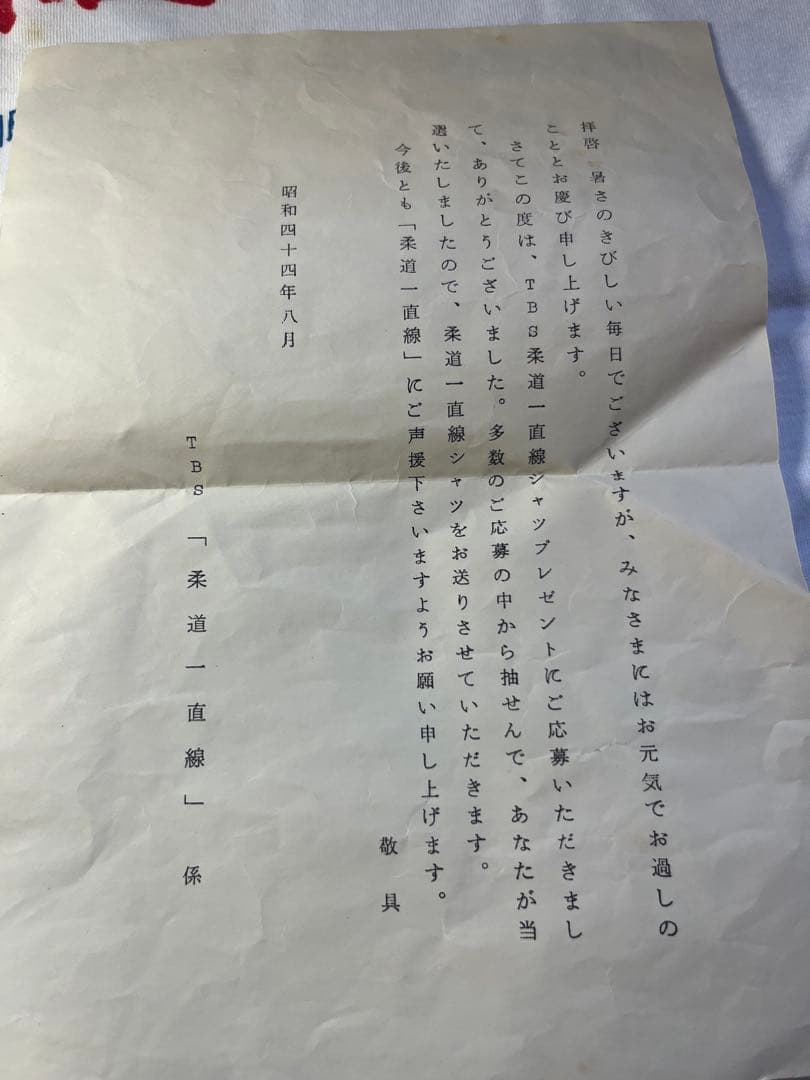 拝啓　暑さのきびしい毎日でございますが、みなさまにはお元気でお過しの
こととお慶び申し上げます。
さてこの度は、TBS柔道一直線シャツプレゼントにご応募いただきまし
て、ありがとうございました。多数のご応募の中から抽せんで、あなたが当
選いたしましたので、柔道一直線シャツをお送りさせていただきます。
今後とも「柔道一直線」にご声援下さいますようお願い申し上げます。
敬具
昭和四十四年八月
TBS「柔道一直線」係